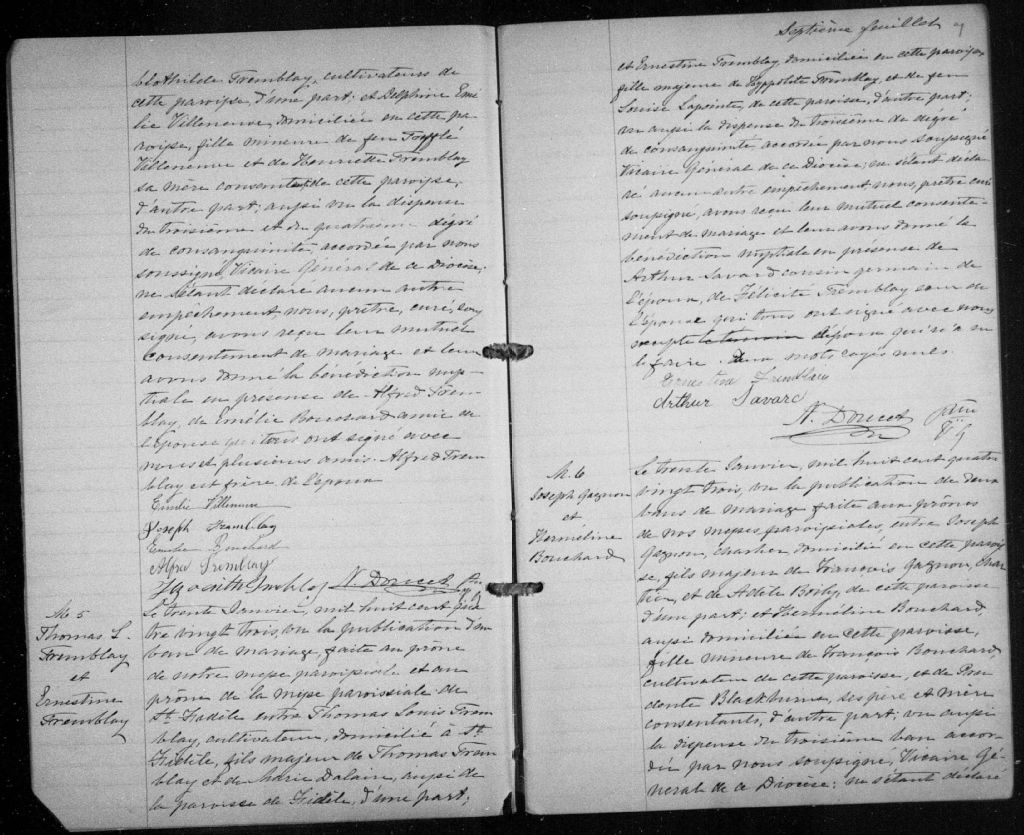 Clothilde Tremblay, cultivateurs de
cette paroisse, d'une part; et Delphine Emé-
lie Villeneuve, domiciliée en cette pa-
roisse, fille mineure de feu Tofflé
Villeneuve et de Henriette Tremblay
sa mère consentente, de cette paroisse,
d'autre part; aussi vu la dispense
du troisième et du quatrième dégré
de consanguinité accordée par nous
soussigné, Vicaire Général de ce Diocèse;
ne s'étant déclaré aucun autre
empêchement nous, prêtre, curé, sous
signé, avons reçu leur mutuel
consentement de mariage et leur
avons donné la bénédiction nup-
tiale en présense de Alfred Trem-
blay, de Emélie Bouchard amie de
l'épouse qui tous ont signé avec
nous et plusieurs amis. Alfred Trem
blay est frère de l'époux
Emilie Villeneuve
Joseph Tremblay
Emilie Bouchard
Alfred Tremblay
N. Doucet
M 5
Thomas L.
Tremblay
et
Ernestine
Tremblay
Le trente Janvier, mil huit cent qua
tre vingt trois, vu la publication d'un
ban de mariage, faite au prône
de notre messe paroissiale et au
prône de la messe paroissiale de
St. Fidèle entre Thomas Louis Trem
blay, cultivateur, domicilié à St.
Fidèle, fils majeur de Thomas Trem
blay et de Marie Dalaire, aussi de
la paroisse de Fidèle, d'une part;
Septième feuillet 7
et Ernestine Tremblay, domiciliée en cette paroisse,
fille majeure de Hyppolite Tremblay, et de feu
Louise Lapointe, de cette paroisse, d'autre part;
vu aussi la dispense du troisième de degré
de consanguinité, accordée par nous soussigné
Vicaire Général de ce Diocèse; ne s'étant décla
ré aucun autre empêchement nous, prêtre curé
soussigné, avons reçu leur mutuel consente-
ment de mariage et leur avons donné la
bénédiction nuptiale en présense de
Arthur Savard cousin germain de
l'époux, de Félicité Tremblay sœur de
l'épouse qui tous ont signé avec nous
excepté le témoin l'époux qui n'a su
le faire. Deux mots rayés nuls.
Ernestine Tremblay
Arthur Savard
N. Doucet Ptre
V. G.
M. 6
Joseph Gagnon
et
Herméline
Bouchard
Le trente Janvier, mil huit cent quatre
vingt trois, vu la publication de deux
bans de mariage faite aux prônes
de nos messes paroissiales, entre Joseph
Gagnon, charretier domicilié en cette parois
se, fils majeur de François Gagnon, char
tier, et de Adèle Boily, de cette paroisse
d'une part; et Herméline Bouchard,
aussi domiciliée en cette paroisse,
fille mineure de François Bouchard
cultivateur de cette paroisse, et de Pru
dente Blackburn, ses père et mère
consentants, d'autre part; vu aussi
la dispense du troisième ban accor-
dée par nous soussigné, Vicaire Gé-
néral de ce Diocèse; ne s'étant déclaré